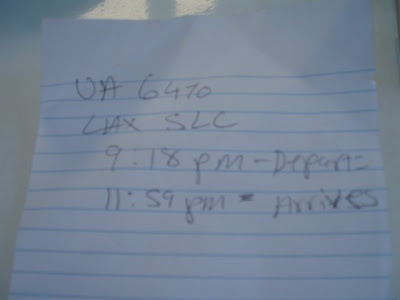 UA 6470
LAX SLC
9:18 pm - Depart =
11:59 pm - Arrives